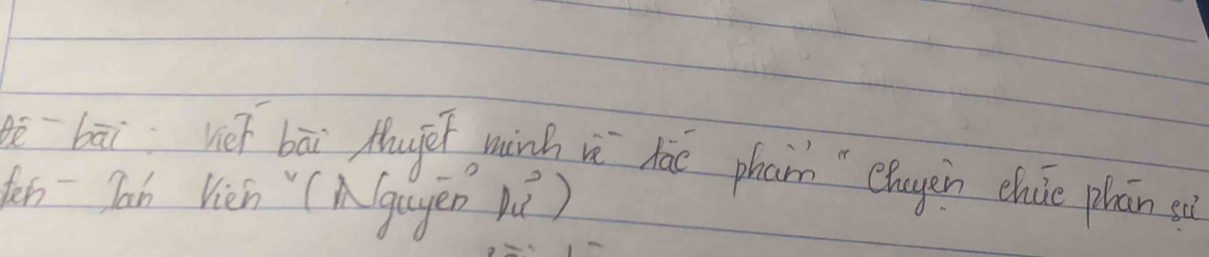 Đề bài: Viết bài thuyết minh về tác phẩm "Chuyện chức phán sự
đền Tản Viên" (Nguyễn Dữ)